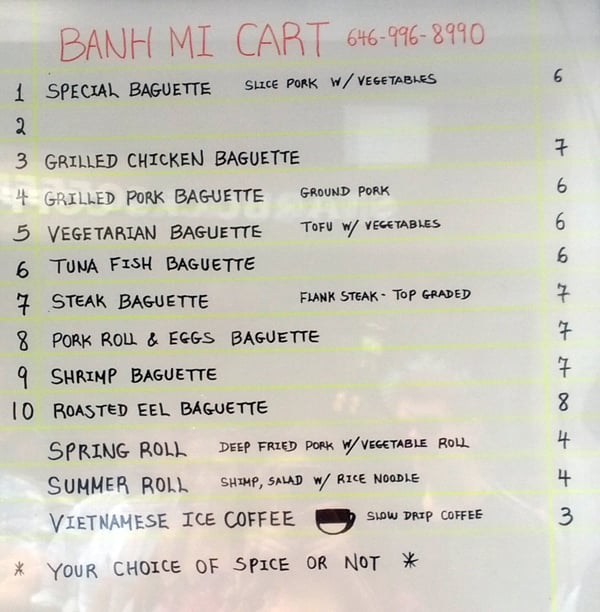 BANH MI CART 646-996-8990
1 SPECIAL BAGUETTE SLICE PORK W/ VEGETABLES 6
2
3 GRILLED CHICKEN BAGUETTE 7
4 GRILLED PORK BAGUETTE GROUND PORK 6
5 VEGETARIAN BAGUETTE TOFU W/ VEGETABLES 6
6 TUNA FISH BAGUETTE 6
7 STEAK BAGUETTE FLANK STEAK - TOP GRADED 7
8 PORK ROLL & EGGS BAGUETTE 7
9 SHRIMP BAGUETTE 7
10 ROASTED EEL BAGUETTE 8
SPRING ROLL DEEP FRIED PORK W/VEGETABLE ROLL 4
SUMMER ROLL SHIMP, SALAD W/ RICE NOODLE 4
VIETNAMESE ICE COFFEE SLOW DRIP COFFEE 3
* YOUR CHOICE OF SPICE OR NOT *